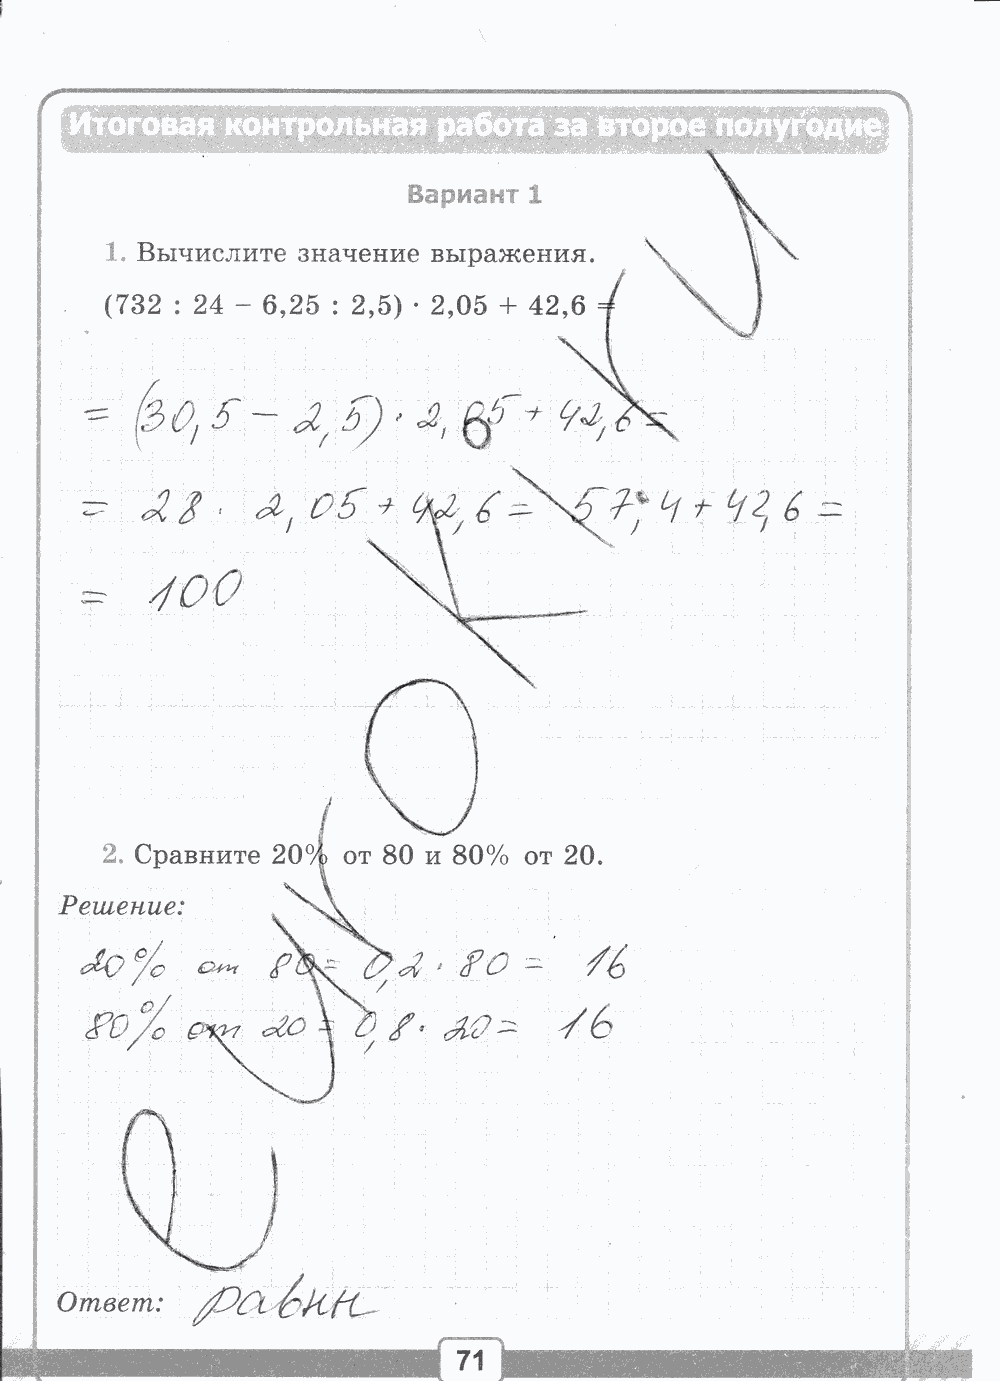 Итоговая контрольная работа за второе полугодие
Вариант 1
1. Вычислите значение выражения.
(732 : 24 − 6,25 : 2,5) · 2,05 + 42,6 =
= (30,5 − 2,5) · 2,05 + 42,6 =
= 28 · 2,05 + 42,6 = 57,4 + 42,6 =
= 100
2. Сравните 20% от 80 и 80% от 20.
Решение:
20% от 80 = 0,2 · 80 = 16
80% от 20 = 0,8 · 20 = 16
Ответ: равны
71